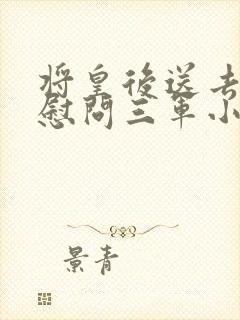 將皇後送去
慰問三軍小
景青